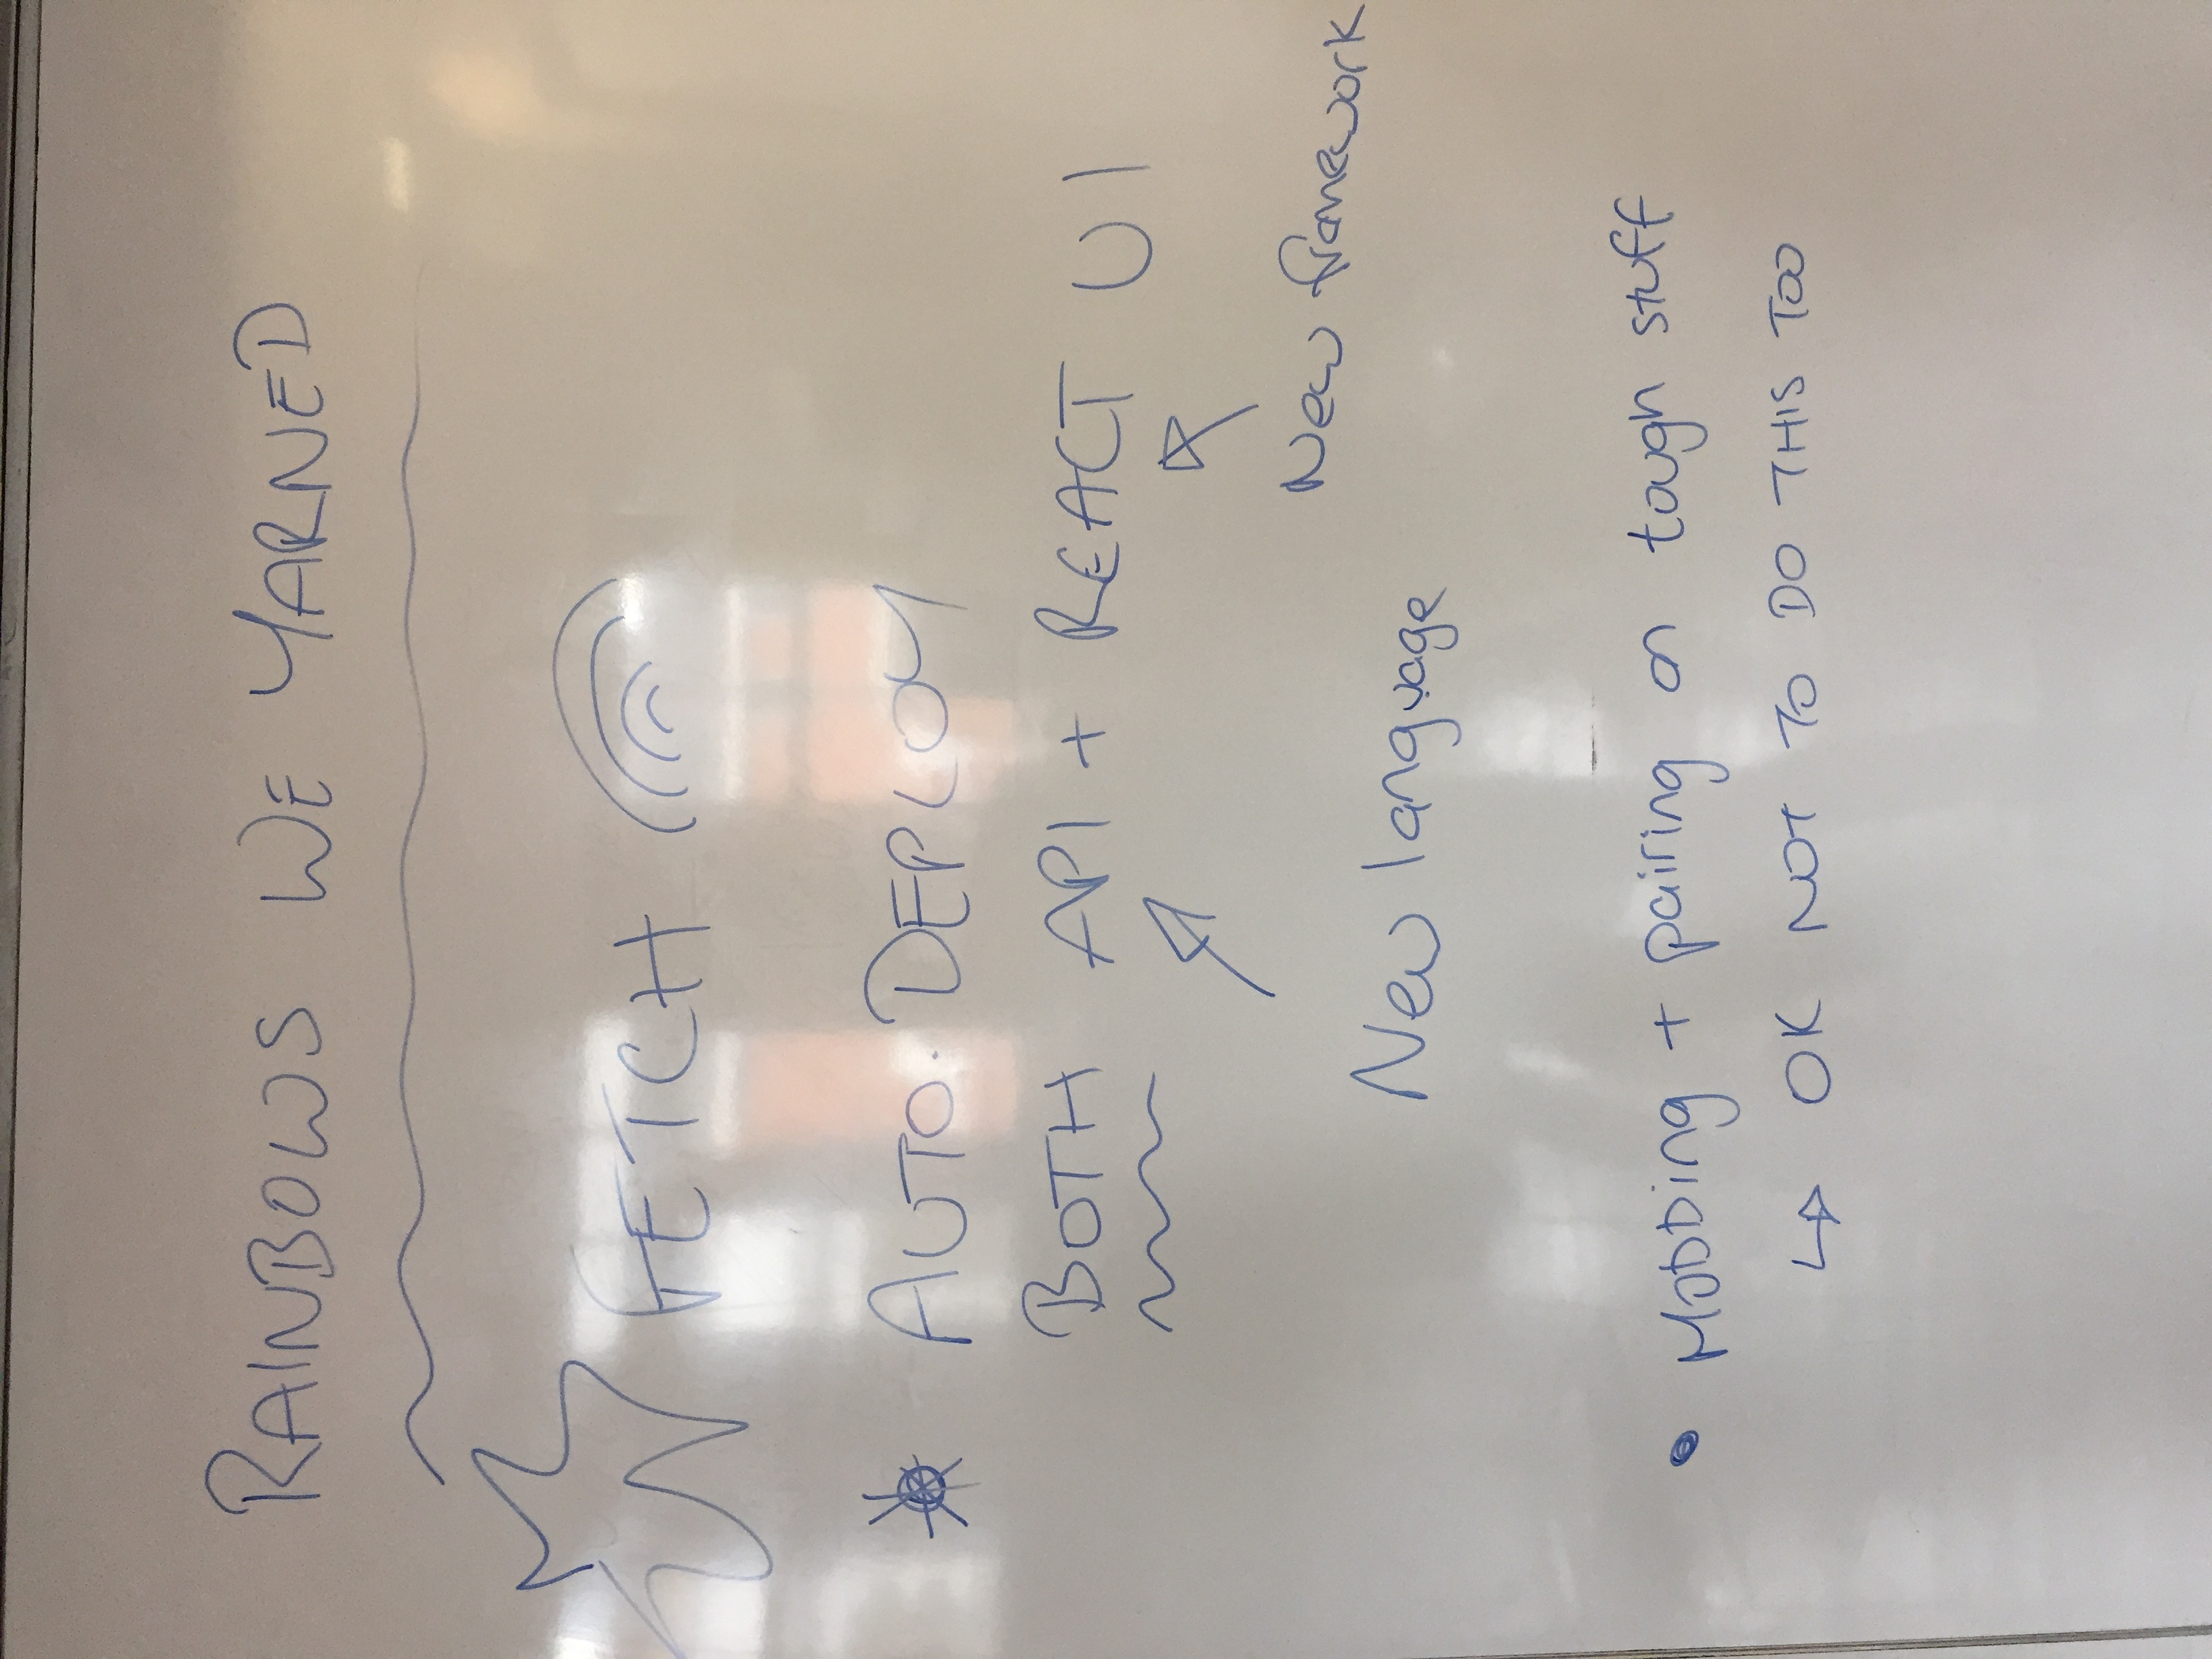 RAINBOWS WE YARNED
FETCH
AUTO. DEPLOY
BOTH API + REACT UI
New framework
New language
Mobbing + pairing on tough stuff
OK NOT TO DO THIS TOO